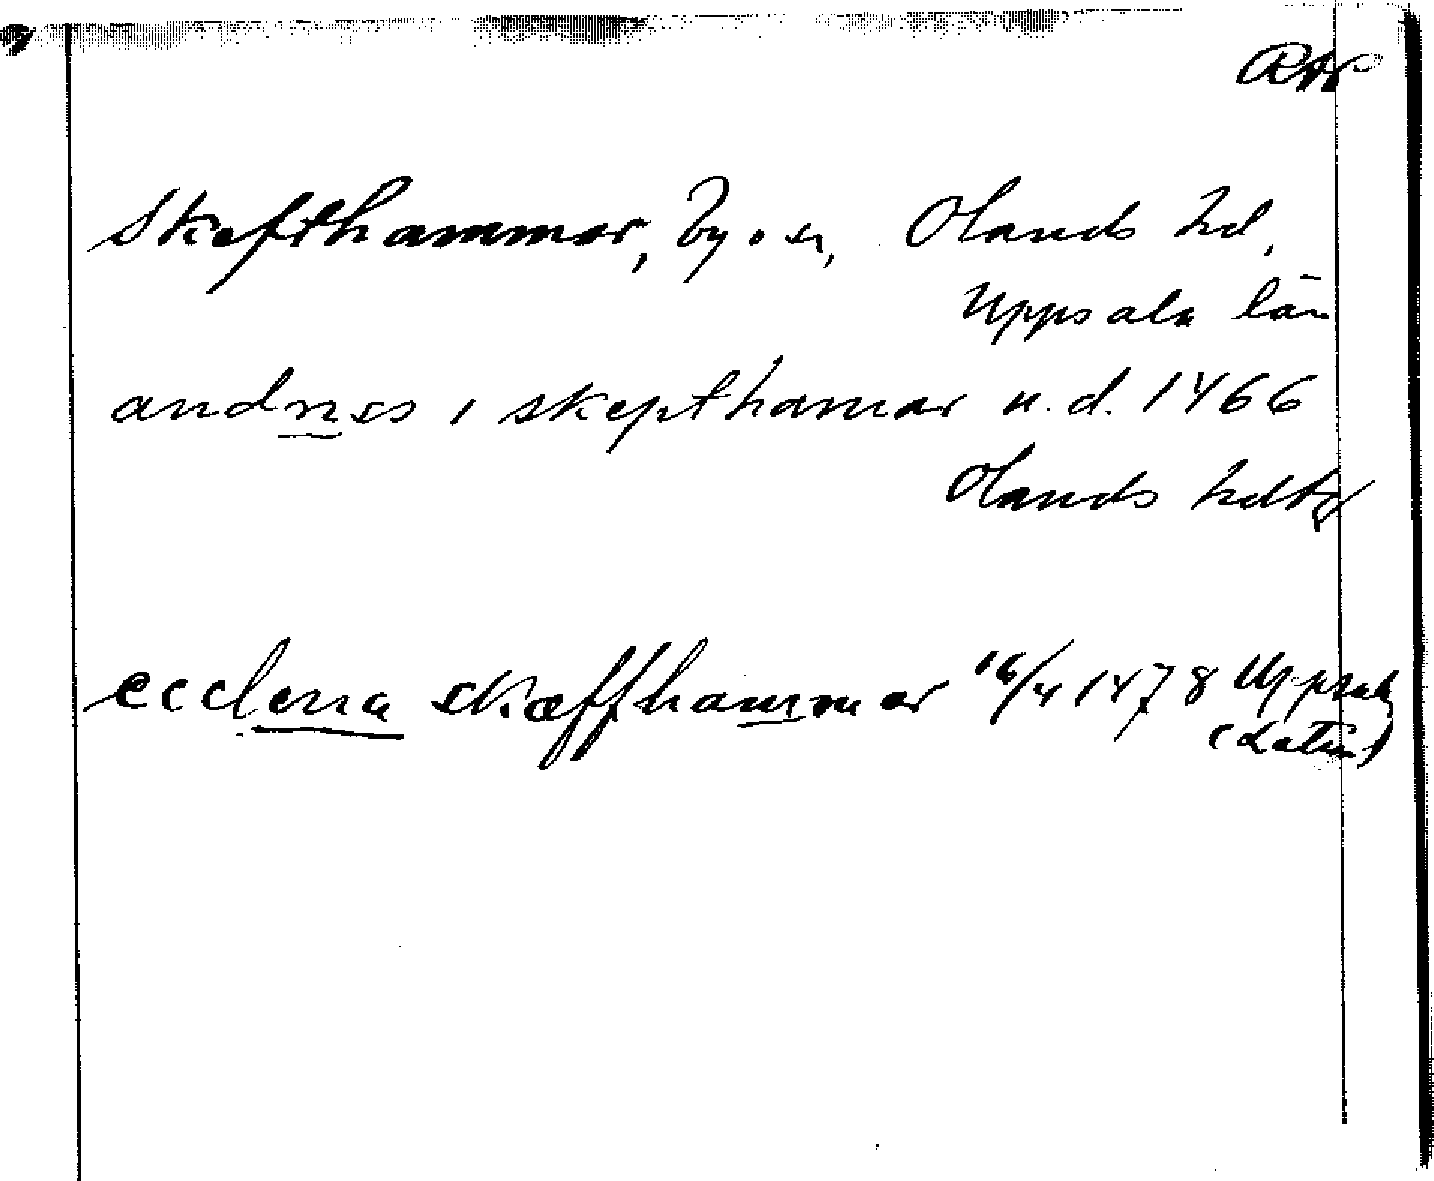 RAP
Skefthammar, by o. sn, Olands hd,
Uppsala län
andres i skepthamar u. d. 1466
Olands hdtg
ecclesia skæffhammar 16/4 1478 Uppsala
(Latin)